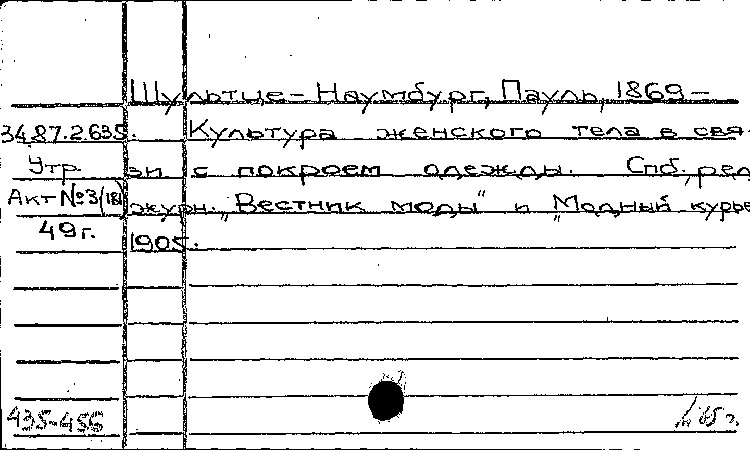 Шультце-Наумбург, Пауль, 1869-
34.87.2.635. Культура женского тела в свя-
Утр. зи с покроем одежды. Спб., ред.
Акт №3(18) журн. „Вестник моды" и „Модный курье
49г. 1905.
435-456